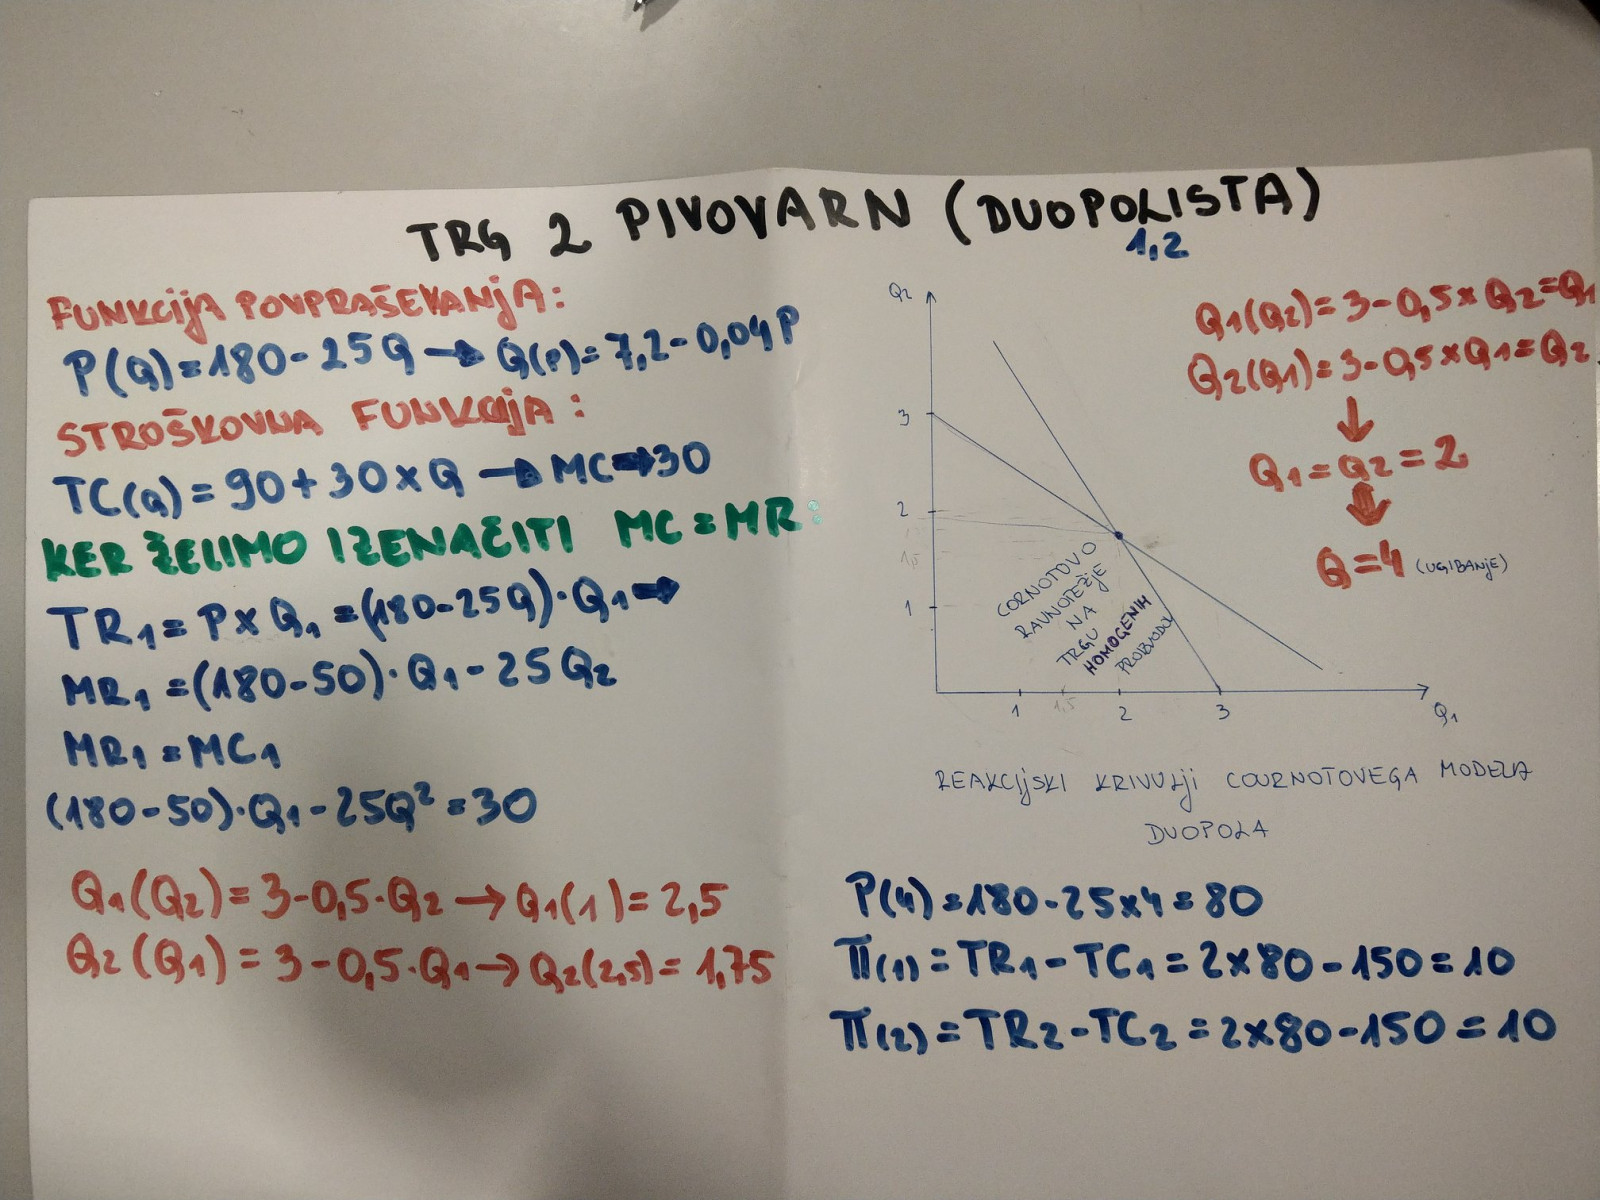 TRG 2 PIVOVARN (DUOPOLISTA)
1,2
FUNKCIJA POVPRAŠEVANJA:
P(Q)=180-25Q → Q(P)=7,2-0,04P
STROŠKOVNA FUNKCIJA:
TC(Q)=90+30×Q → MC→30
KER ŽELIMO IZENAČITI MC=MR:
TR1=P×Q1=(180-25Q)·Q1→
MR1=(180-50)·Q1-25Q2
MR1=MC1
(180-50)·Q1-25Q²=30
Q1(Q2)=3-0,5·Q2→Q1(1)=2,5
Q2(Q1)=3-0,5·Q1→Q2(2,5)=1,75
Q2
3
2
1,5
1
1
1,5
2
3
Q1
CORNOTOVO
RAVNOTEŽJE
NA
TRGU
HOMOGENIH
PROIZVODOV
REAKCIJSKI KRIVULJI COURNOTOVEGA MODELA
DUOPOLA
Q1(Q2)=3-0,5×Q2=Q1
Q2(Q1)=3-0,5×Q1=Q2
↓
Q1=Q2=2
⇕
Q=4 (UGIBANJE)
P(4)=180-25×4=80
π(1)=TR1-TC1=2×80-150=10
π(2)=TR2-TC2=2×80-150=10